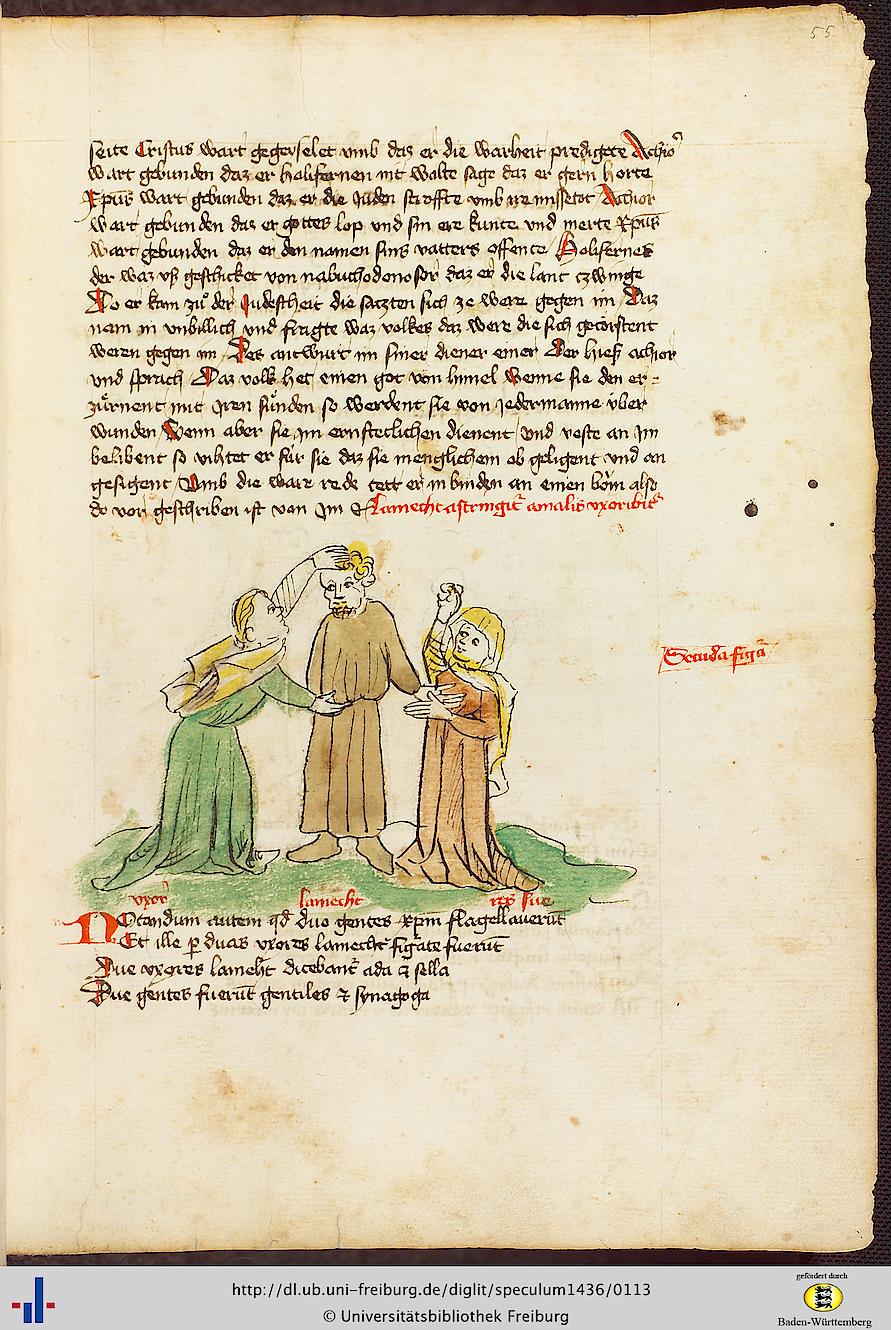 55
seite Cristus wart gegeiselet vmb daz er die warheit predigete Achior
wart gebunden daz er holifernen nit wolte sage daz er gern horte
Xpūs wart gebunden daz er die Juden stroffte vmb ire missetot Achior
wart gebunden daz er gottes lop vnd sin ere kunte vnd merte Xpūs
wart gebunden daz er den namen sins vatters offente Holifernes
der waz vß geschicket von nabuchodonosor daz er die lant czwinge
Do er kam zů der Judescheit die saczten sich ze were gegen im Daz
nam in vnbillich vnd fragte waz volkes daz were die sich getorstent
weren gegen im Des antwurt im siner diener einer Der hieß achior
vnd sprach Daz volk het einen got von himel Wenne sie den er=
zůrnent mit Jren sůnden so werdent sie von Jedermanne über
wunden Wenn aber sie im ernsteclichen dienent vnd veste an Jm
belibent so vihtet er für sie daz sie menglichem ob geligent vnd an
gesigent Vmb die ware rede tett er in binden an einen böm also
do vor geschriben ist von Jm Lamecht astringit᷑ a malis vxoribꝰ
Secūda figᷓa
vxor lamecht res sue
NOtandum autem qd duo gentes xpm flagellauerūt
Et ille p duas vxores lamecht figᷓate fuerūt
Due vxores lameht dicebant᷑ ada &amp; sella
Due gentes fuerūt gentiles ⁊ synagoga
http://dl.ub.uni-freiburg.de/diglit/speculum1436/0113
© Universitätsbibliothek Freiburg
gefördert durch
Baden-Württemberg